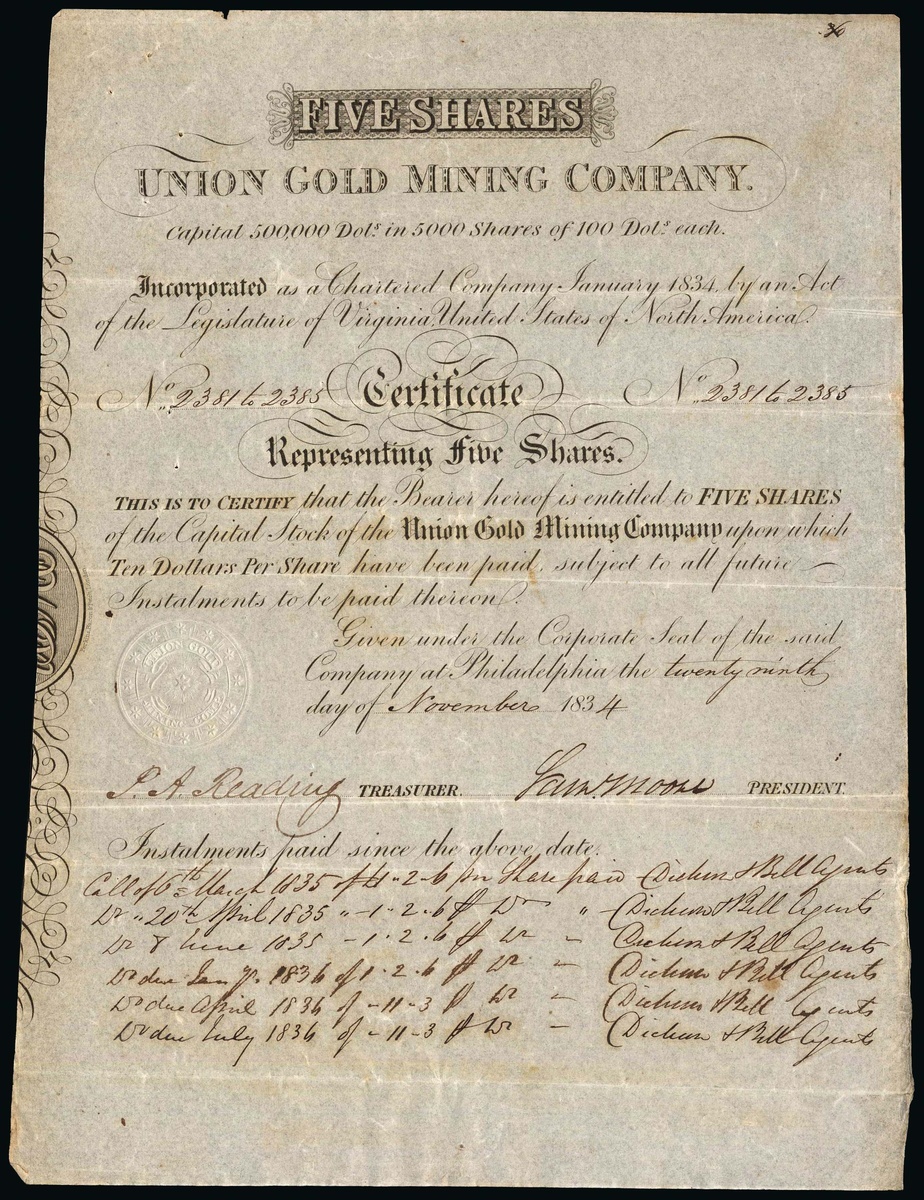 36
FIVE SHARES
UNION GOLD MINING COMPANY.
Capital 500,000 Dolˢ. in 5000 Shares of 100 Dolˢ. each.
Incorporated as a Chartered Company January 1834, by an Act
of the Legislature of Virginia, United States of North America.
Nº. 2381 to 2385 Certificate Nº. 2381 to 2385
Representing Five Shares.
THIS IS TO CERTIFY that the Bearer hereof is entitled to FIVE SHARES
of the Capital Stock of the Union Gold Mining Company upon which
Ten Dollars Per Share have been paid, subject to all future
Instalments to be paid thereon.
Given under the Corporate Seal of the said
Company at Philadelphia the twenty ninth
day of November 1834
UNION GOLD
MINING COMPY
P. A. Reading TREASURER. Samˡ. Moore PRESIDENT.
Instalments paid since the above date.
Call of 6th March 1835 of £1-2-6 per Share paid - Dickson & Bell Agents
Dº " 20th April 1835 " - 1-2-6 ⅌ Dº " - Dickson & Bell Agents
Dº 8 June 1835 - 1-2-6 ⅌ Dº - Dickson & Bell Agents
Dº due Jany. 1836 of 1-2-6 ⅌ Dº - Dickson & Bell Agents
Dº due April 1836 of - 11-3 ⅌ Dº - Dickson & Bell Agents
Dº due July 1836 of - 11-3 ⅌ Dº - Dickson & Bell Agents